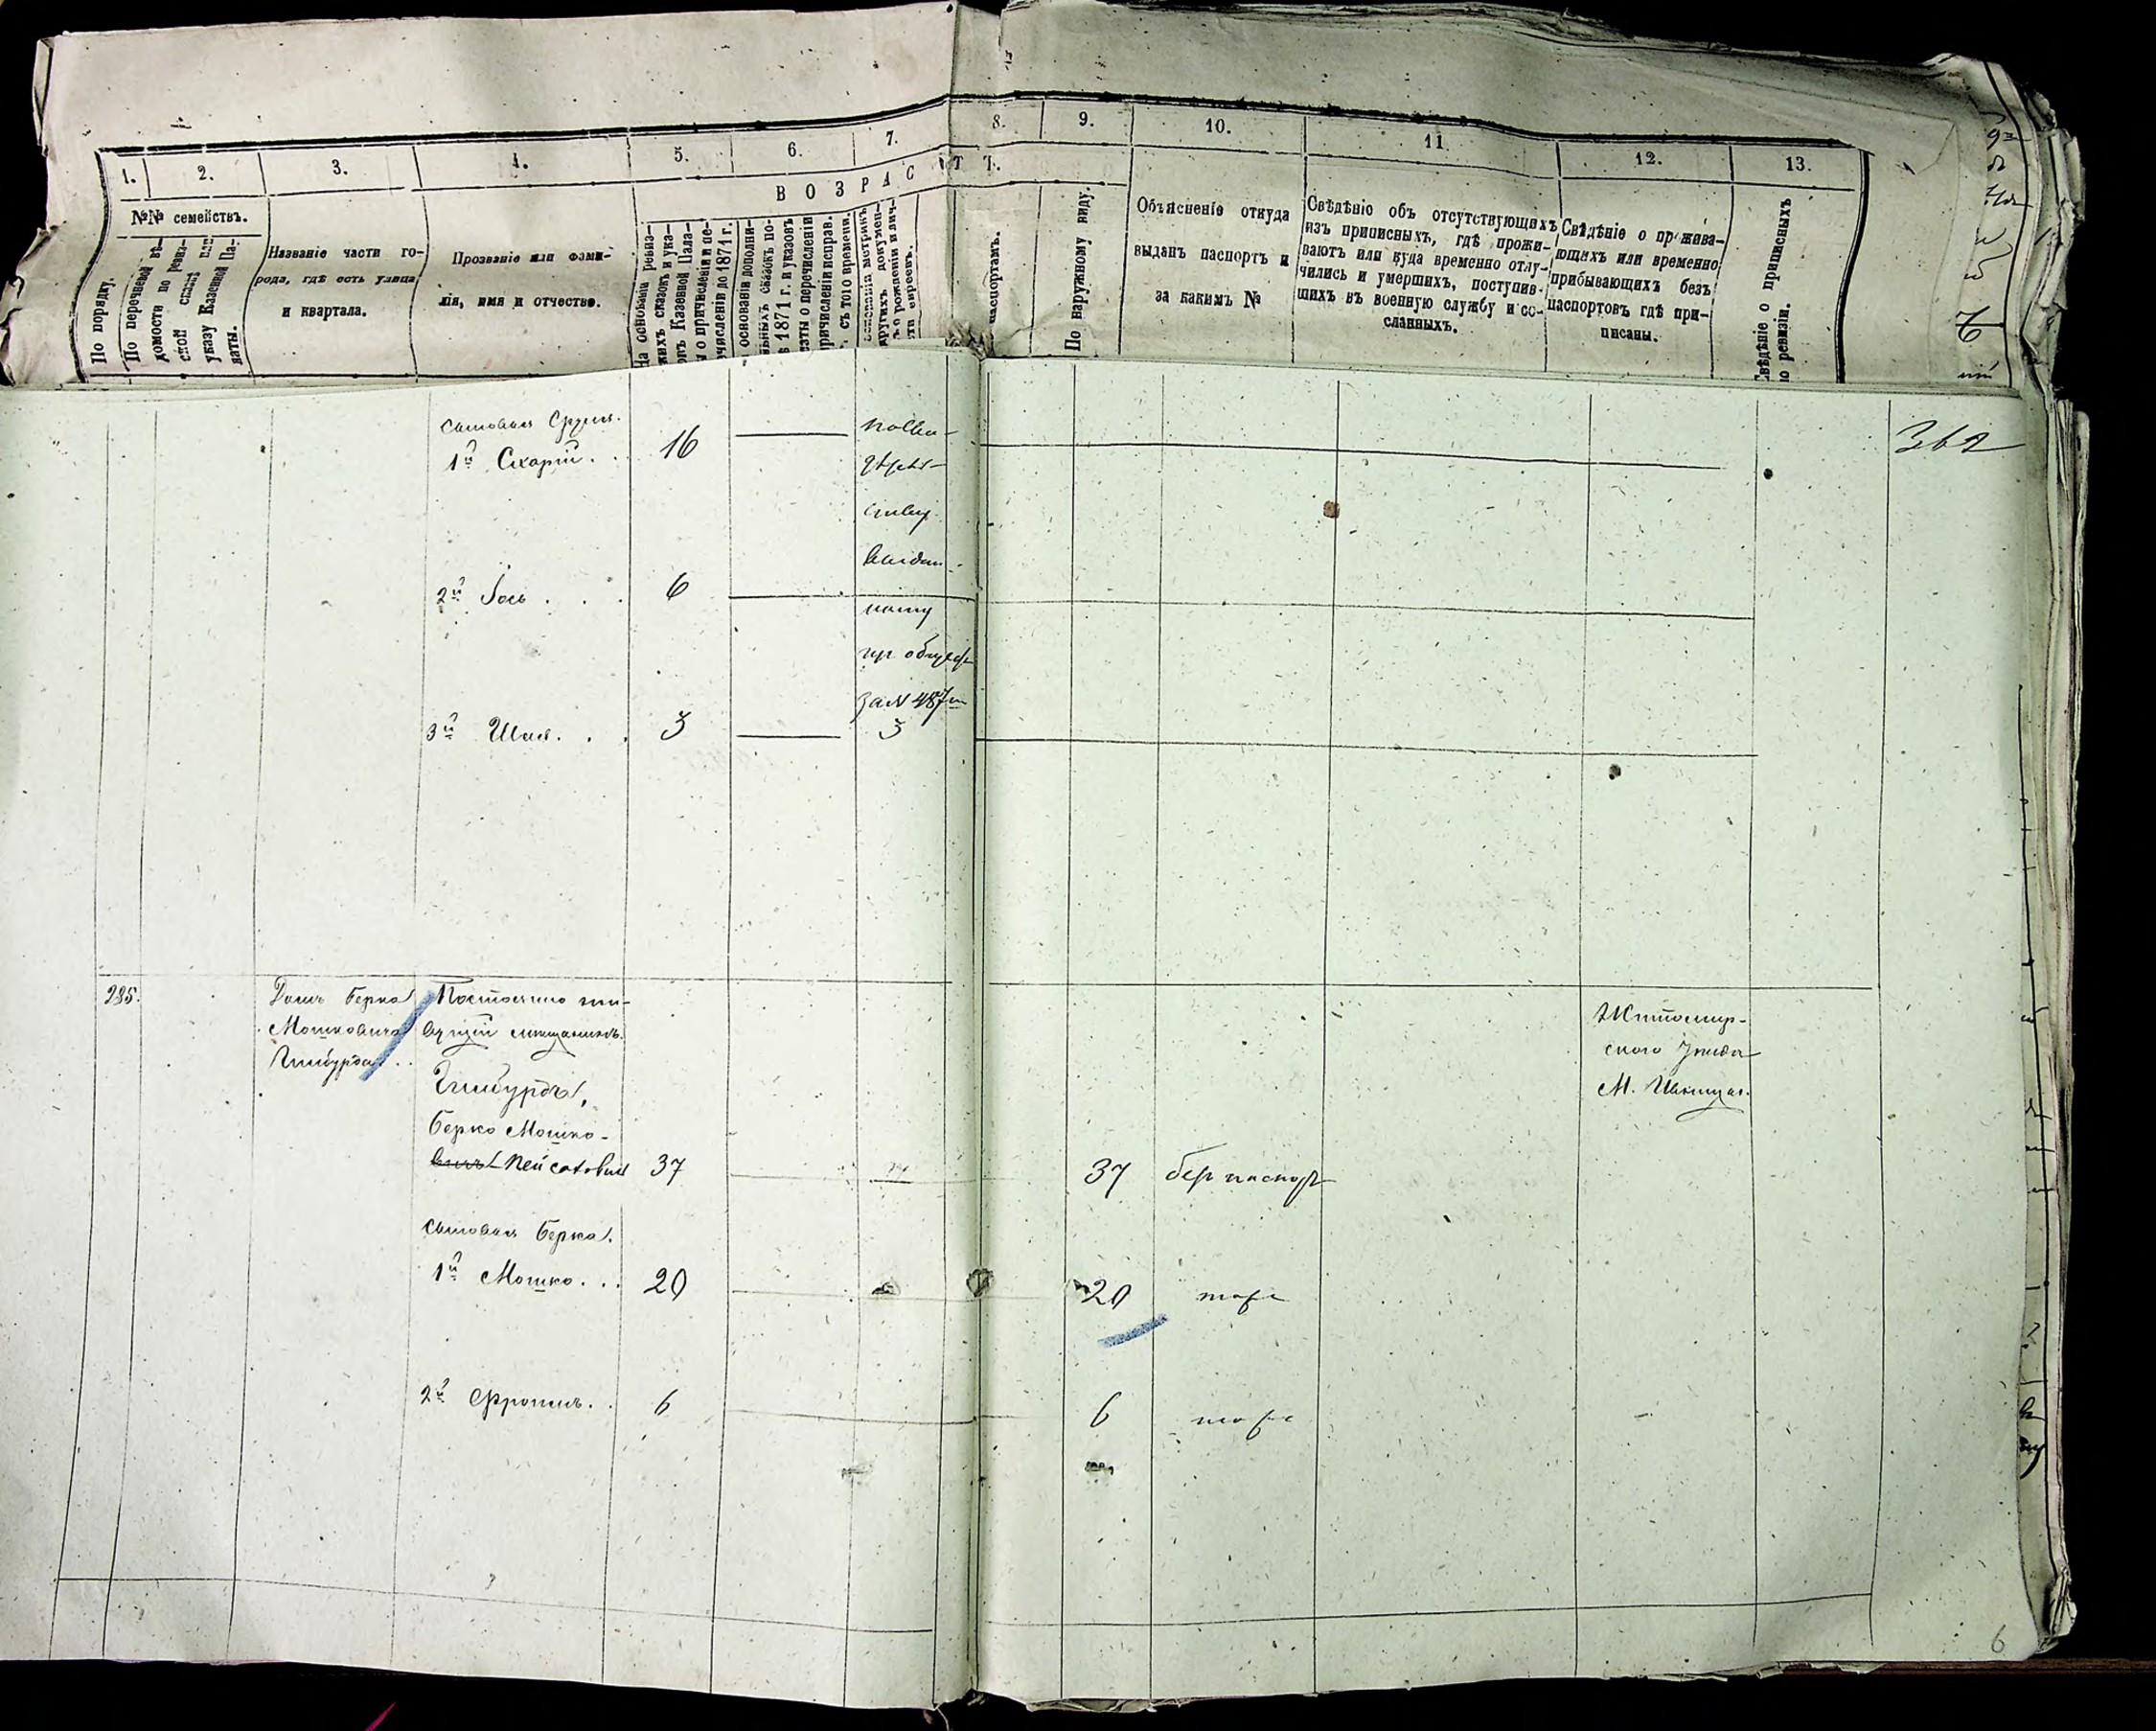 1. 2. 3. 4. 5. 6. 7. 8. 9. 10. 11 12. 13.
ВОЗРАСТЪ.
№№ семействъ.
По порядку.
По перечневой вѣ-
домости по ревиз-
ской сказкѣ или
указу Казенной Па-
латы.
Названіе части го-
рода, гдѣ есть улица
и квартала.
Прозваніе или фами-
лія, имя и отчество.
На основаніи ревиз-
скихъ сказокъ и ука-
зовъ Казенной Пала-
ты о причисленіи и пе-
речисленіи до 1871 г.
основаніи дополни-
тельныхъ сказокъ по-
1871 г. и указовъ
Палаты о перечисленіи
причисленіи исправ.
съ того времени.
основаніи метрикъ
другихъ докумен-
о рожденіи и лич-
сти евреевъ.
паспортамъ.
По наружному виду.
Объясненіе откуда
выданъ паспортъ и
за какимъ №
Свѣдѣніе объ отсутствующихъ
изъ приписныхъ, гдѣ прожи-
ваютъ или куда временно отлу-
чились и умершихъ, поступив-
шихъ въ военную службу и со-
сланныхъ.
Свѣдѣніе о прожива-
ющихъ или временно
прибывающихъ безъ
паспортовъ гдѣ при-
писаны.
Свѣдѣніе о приписныхъ
по ревизіи.
362
сыновья Сруля.
1й Схарій. 16
2й Іось . . . 6
выдан-
ному
за N 487
3й Шая. . . 3 3
285.
Домъ Берка
Мошковича
Гинбурга. .
Постоянно жи-
вущій мѣщанинъ.
Гинбургъ,
Берко Мошко-
вичъ Пейсахович 37 37 без паспорт
сыновья Берка.
1й Мошко. . . 20 20 тоже
2й Фроимъ. . 6 6 тоже
Житомир-
скаго уѣзда
М.
6